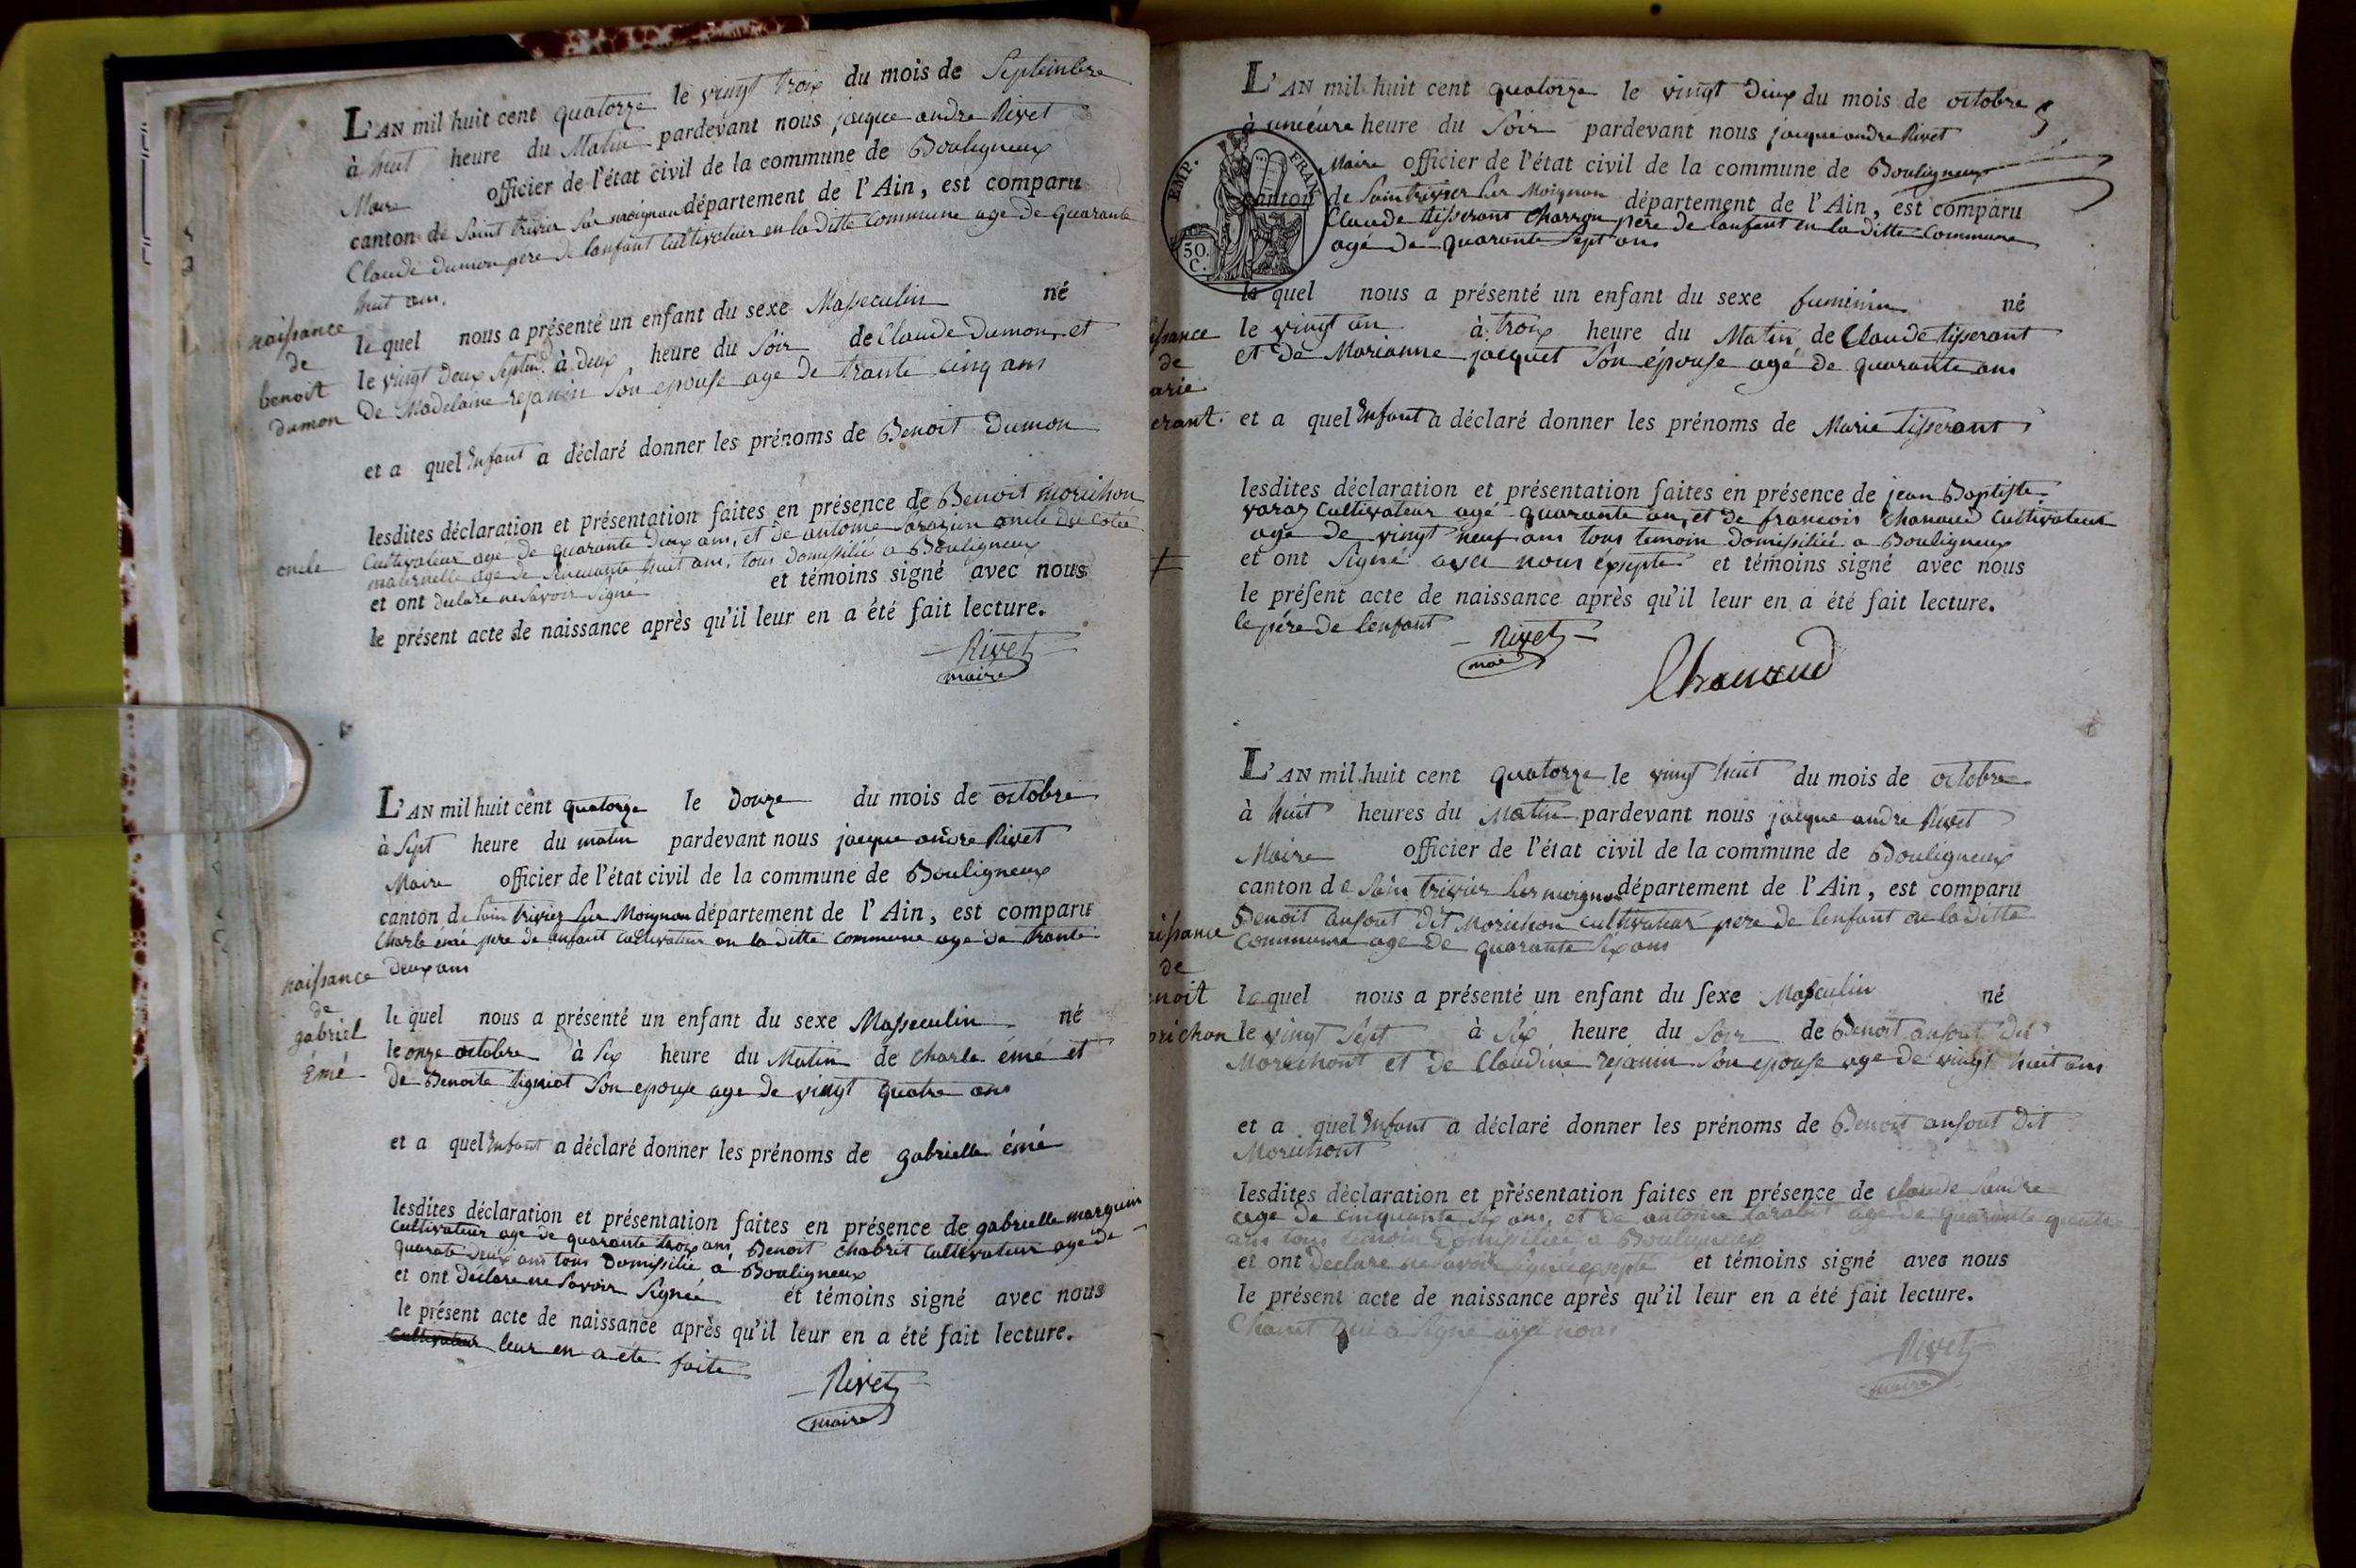 L'AN mil huit cent quatorze le vingt trois du mois de Septembre
à huit heure du Matin pardevant nous jacque andre Rivet
Maire officier de l'état civil de la commune de Bouligneux
canton de Saint trivier Sur moignan département de l'Ain, est comparu
Claude dumon pere de lanfant Cultivateur en la ditte Commune age de quarante
huit ans.
naissance
de
benoit
dumon
le quel nous a présenté un enfant du sexe Masseculin né
le vingt deux Septbre à deux heure du Soir de Claude dumon, et
de Madelaine rejanin Son epouse age de trante cinq ans
et a quel Enfant a déclaré donner les prénoms de Benoit Dumon
lesdites déclaration et présentation faites en présence de Benoit morichon
oncle
Cultivateur agé de quarante deux ans, et de antoine Sarazin oncle du Coteé
maternelle age de huit ans, tous domissilié a Bouligneux
et ont declare ne Savoir Signé et témoins signé avec nous
le présent acte de naissance après qu'il leur en a été fait lecture.
Rivet
maire
L'AN mil huit cent quatorze le Douze du mois de octobre
à Sept heure du matin pardevant nous jacque andre Rivet
Maire officier de l'état civil de la commune de Bouligneux
canton de Sain trivier Sur Moignan département de l'Ain, est comparu
Charle émé pere de lanfant cultivateur en la ditte commune age de trante
deux ans
naissance
de
gabriel
émé
le quel nous a présenté un enfant du sexe Masseculin né
le onze octobre à Six heure du Matin de charle émé et
de Benoite tigniot Son epouse age de vingt quatre ans
et a quel Enfant a déclaré donner les prénoms de gabrielle émé
lesdites déclaration et présentation faites en présence de gabrielle marguin
Cultivateur age de quarante trois ans, Benoit chabrit Cultivateur age de
quarate deux ans tous Domissilié a Bouligneux
et ont déclare ne Savoir Signée et témoins signé avec nous
le présent acte de naissance après qu'il leur en a été fait lecture.
Cultivateur leur en a ete faite
Rivet
maire
L'AN mil huit cent quatorze le vingt deux du mois de octobre
à heure du Soir pardevant nous jacque andre Rivet
EMP. FRAN
50. C.
Maire officier de l'état civil de la commune de Bouligneux
canton de Sain trivier Sur Moignan département de l'Ain, est comparu
Claude tisserant Charron pere de lanfant en la ditte Commune
agé de quarante Sept ans
le quel nous a présenté un enfant du sexe fuminin né
issance
de
arie
erant.
le vingt un à trois heure du Matin de Claude tisserant
et de Marianne jacquet Son épouse agé de quarante ans
et a quel Enfant a déclaré donner les prénoms de Marie tisserant
lesdites déclaration et présentation faites en présence de jean Baptiste
varaz Cultivateur agé quarante an, et de francois Chanaud Cultivateur
age de vingt neuf ans tous temoin domissilié a Bouligneux
et ont Signé avec nous éxsepté et témoins signé avec nous
le présent acte de naissance après qu'il leur en a été fait lecture.
le pére de lenfant
Rivet
Chanaud
L'AN mil huit cent quatorze le vingt huit du mois de octobre
à huit heures du Matin pardevant nous jacque andre Rivet
Maire officier de l'état civil de la commune de Bouligneux
canton de Sain trivier Sur moignan département de l'Ain, est comparu
Benoit anfont dit Morichon cultivateur pere de lenfant en la ditte
Commune age de quarante Six ans
issance
de
enoit
orichon
le quel nous a présenté un enfant du sexe Masculin né
le vingt Sept à Six heure du Soir de Benoit anfont dit
Morichont et de Claudine rejanin Son epouse age de vingt huit ans
et a quel Enfant a déclaré donner les prénoms de Benoit anfont dit
Morichont
lesdites déclaration et présentation faites en présence de claude
age de cinquante Six ans, et de antoine age de quarante quatre
ans tous temoin domissilié a Bouligneux
et ont declare ne savoir et témoins signé avec nous
le présent acte de naissance après qu'il leur en a été fait lecture.
qui a Signé avec nous
Rivet
maire